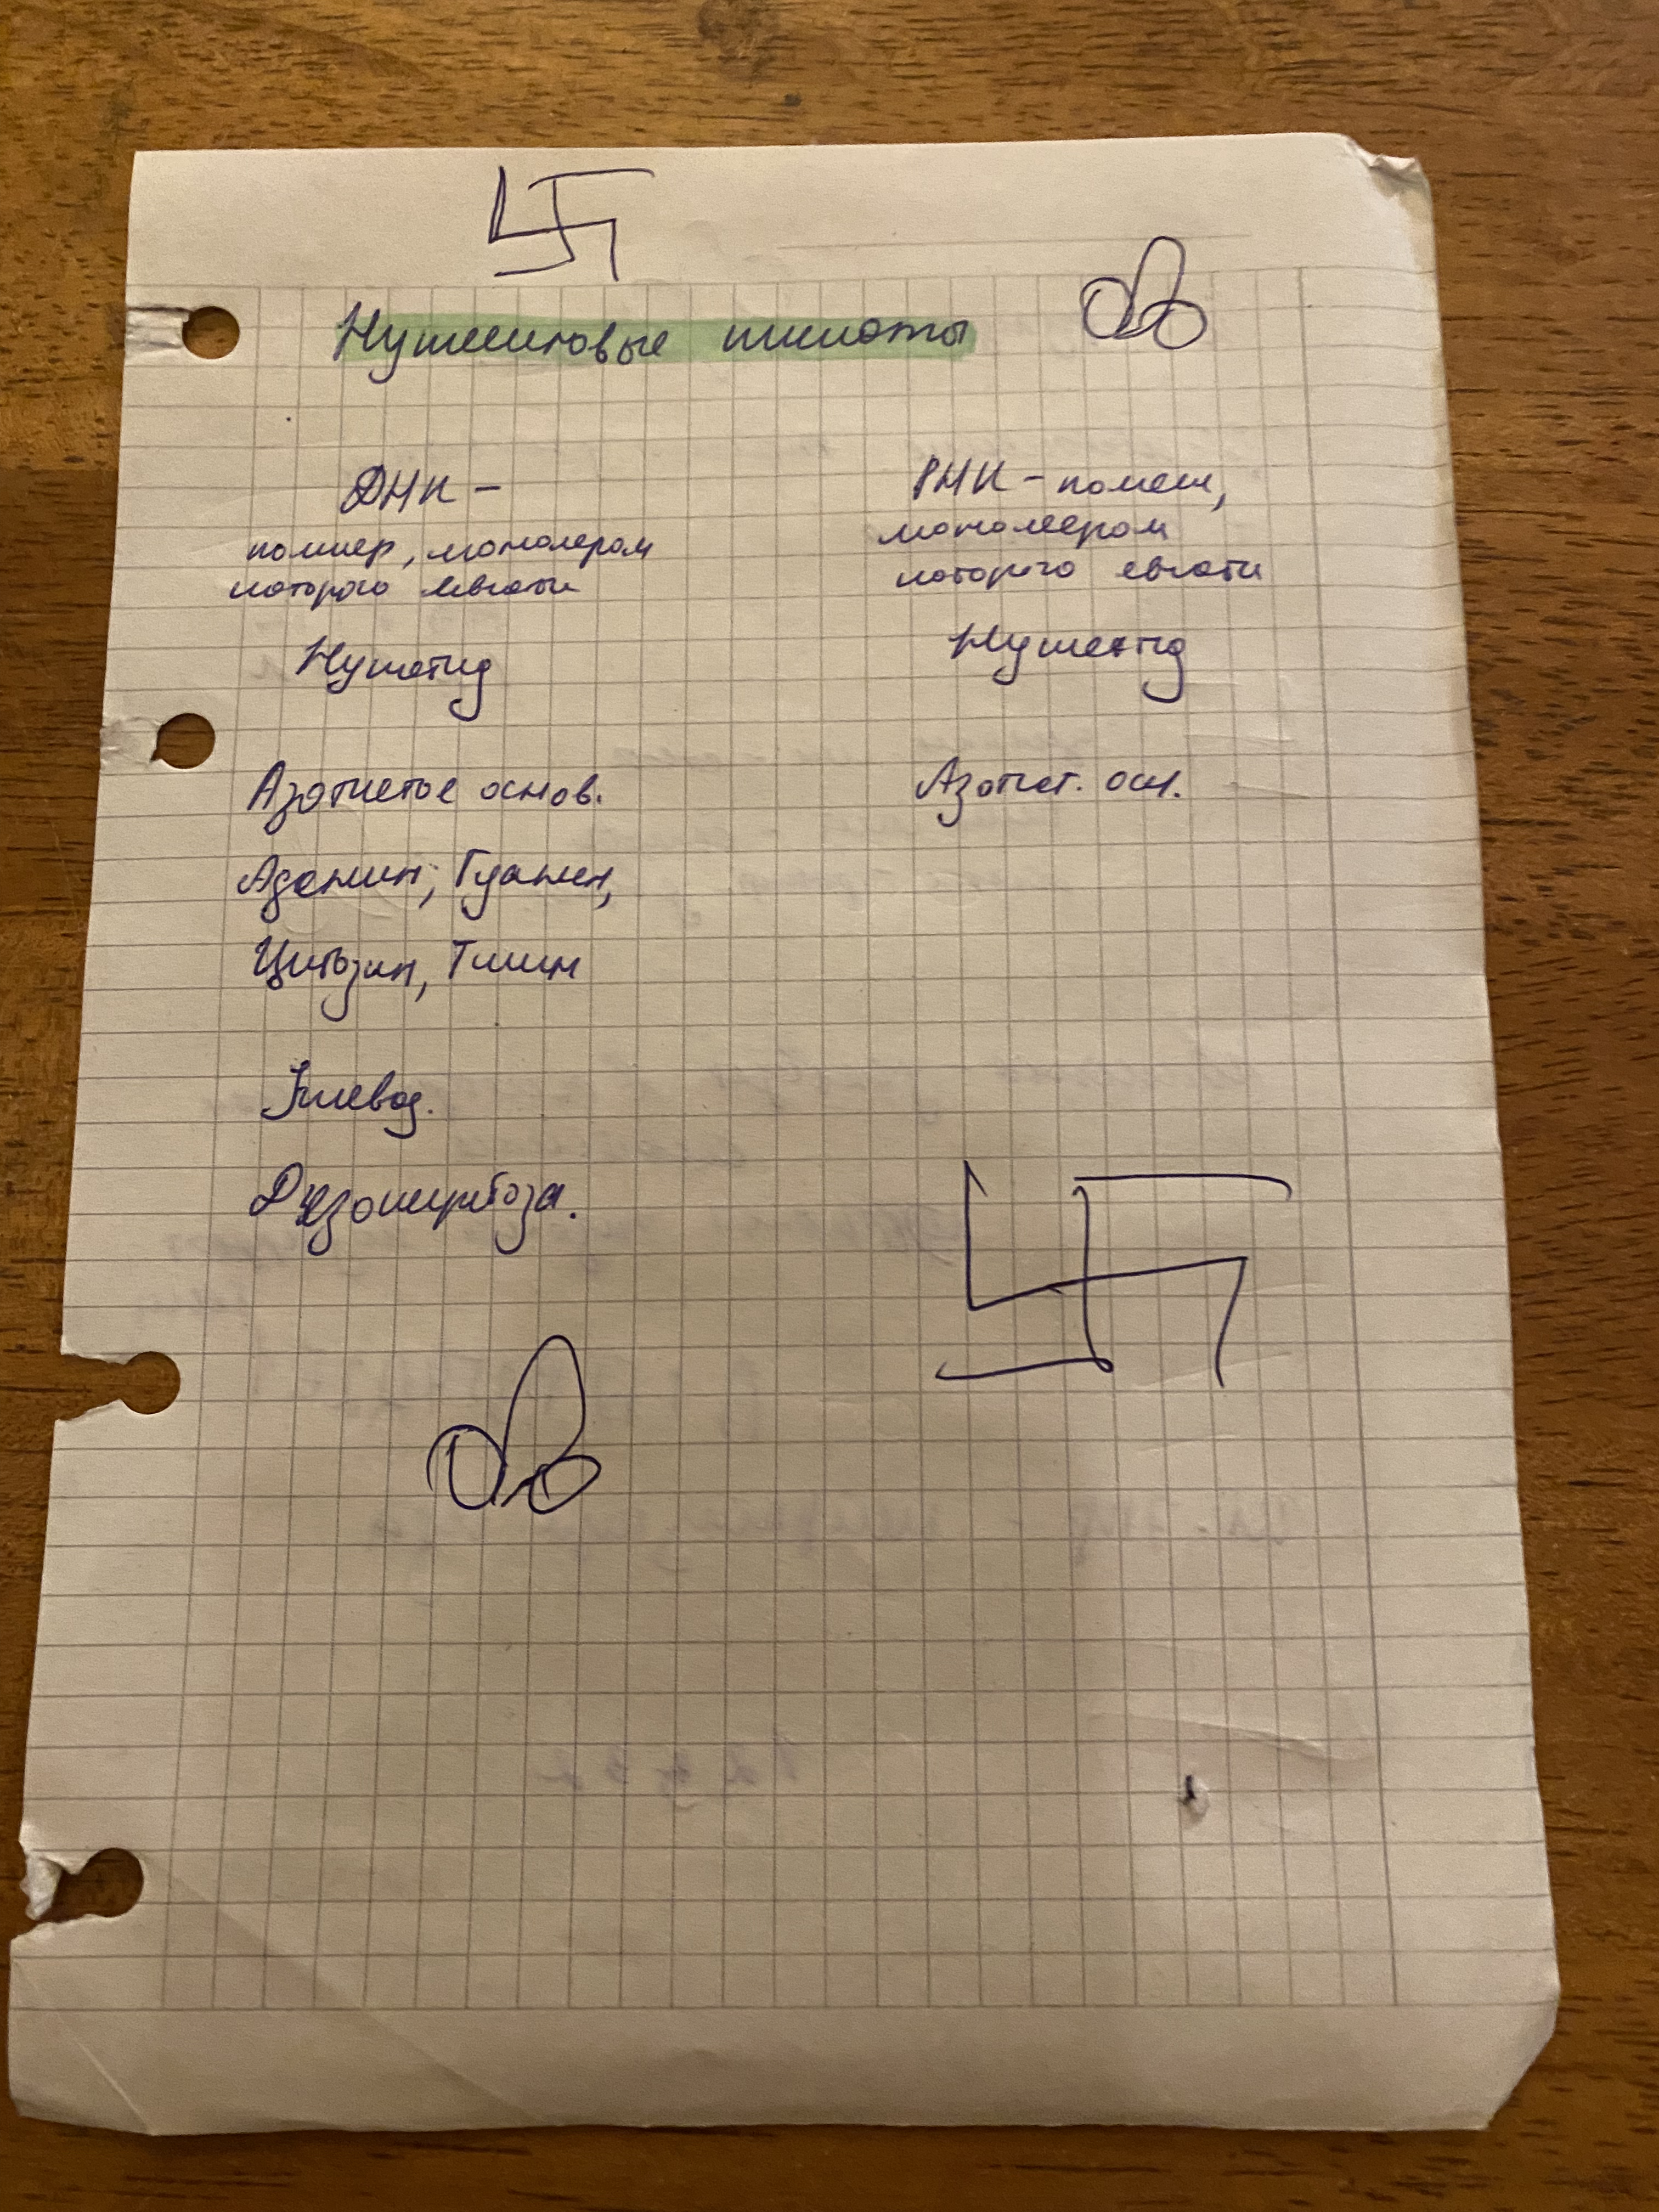 Нуклеиновые кислоты
ДНК -
полимер, мономером
которого является
Нуклеотид
Азотистое основ.
Аденин, Гуанин,
Цитозин, Тимин
Углевод.
Дизоксирибоза.
РНК - полим,
мономером
которого является
Нуклеотид
Азотист. осн.